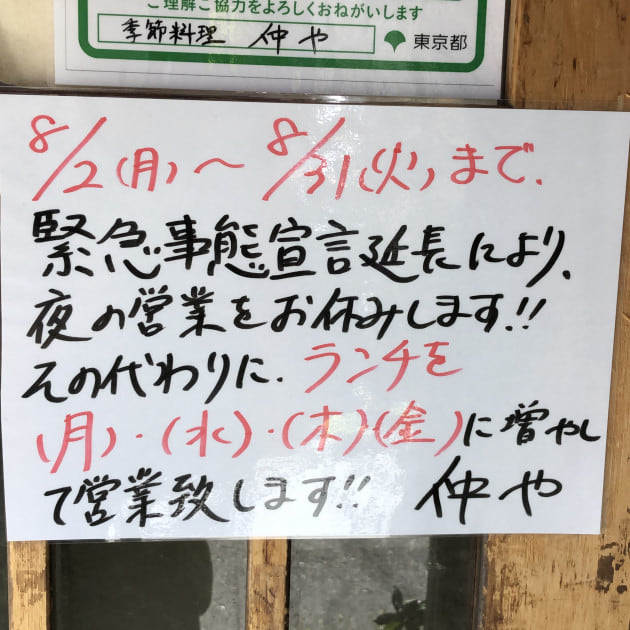 ご理解ご協力をよろしくおねがいします
季節料理 仲や
東京都
8/2(月)～8/31(火)まで、
緊急事態宣言延長により、
夜の営業をお休みします!!
その代わりに、ランチを
(月)・(水)・(木)(金)に増やし
て営業致します!! 仲や